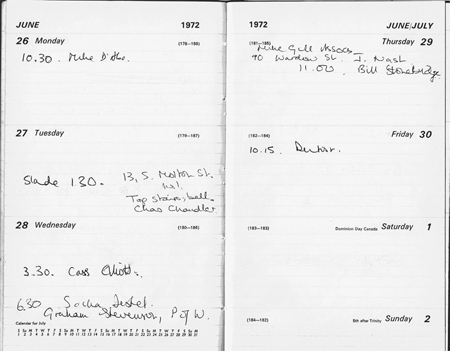 JUNE 1972
26 Monday (178-188)
10.30. Mike D'Abo.
27 Tuesday (179-187)
Slade 1.30. 13, S. Molton St.
W.1.
Top Stairs, bell.
Chas Chandler
28 Wednesday (180-186)
3.30. Cass Elliott.
6.30 Sacha Distel.
Graham Stevenson, P of W.
Calendar for July
S M T W T F S S M T W T F S S M T W T F S S M T W T F S S M
1972 JUNE/JULY
(181-185) Thursday 29
Mike Gill Assocs
90 Wardour St. J. Nash
11.00. Bill Stonebridge
(182-184) Friday 30
10.15. Dentist.
(183-183) Dominion Day Canada Saturday 1
(184-182) 5th after Trinity Sunday 2